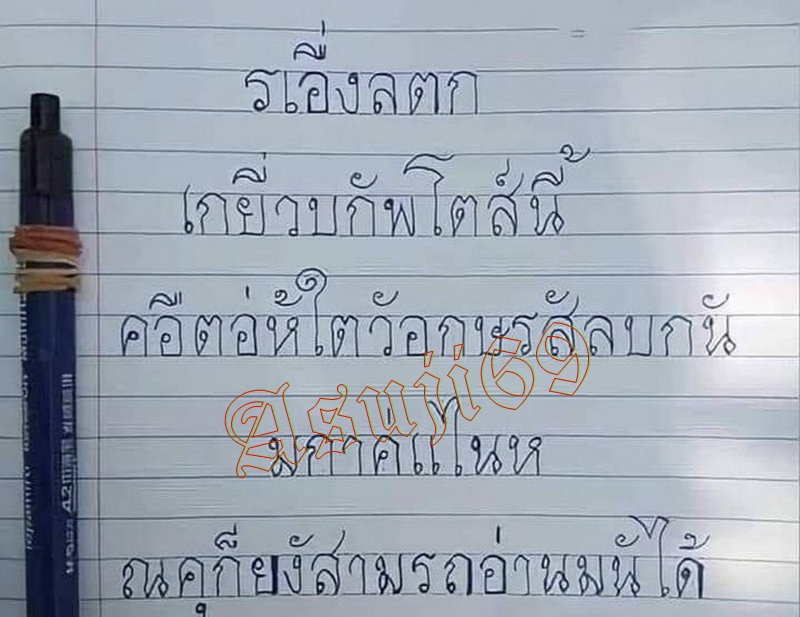 รเอื่งลตก
เกยี่วบกัพโตส์นี้
คอืตอ่ห้ใตวัอกษรสัลบกนั
มกาค่แไนห
ณคุก็ยงัสามรถอ่านมนัได้
Asuji69